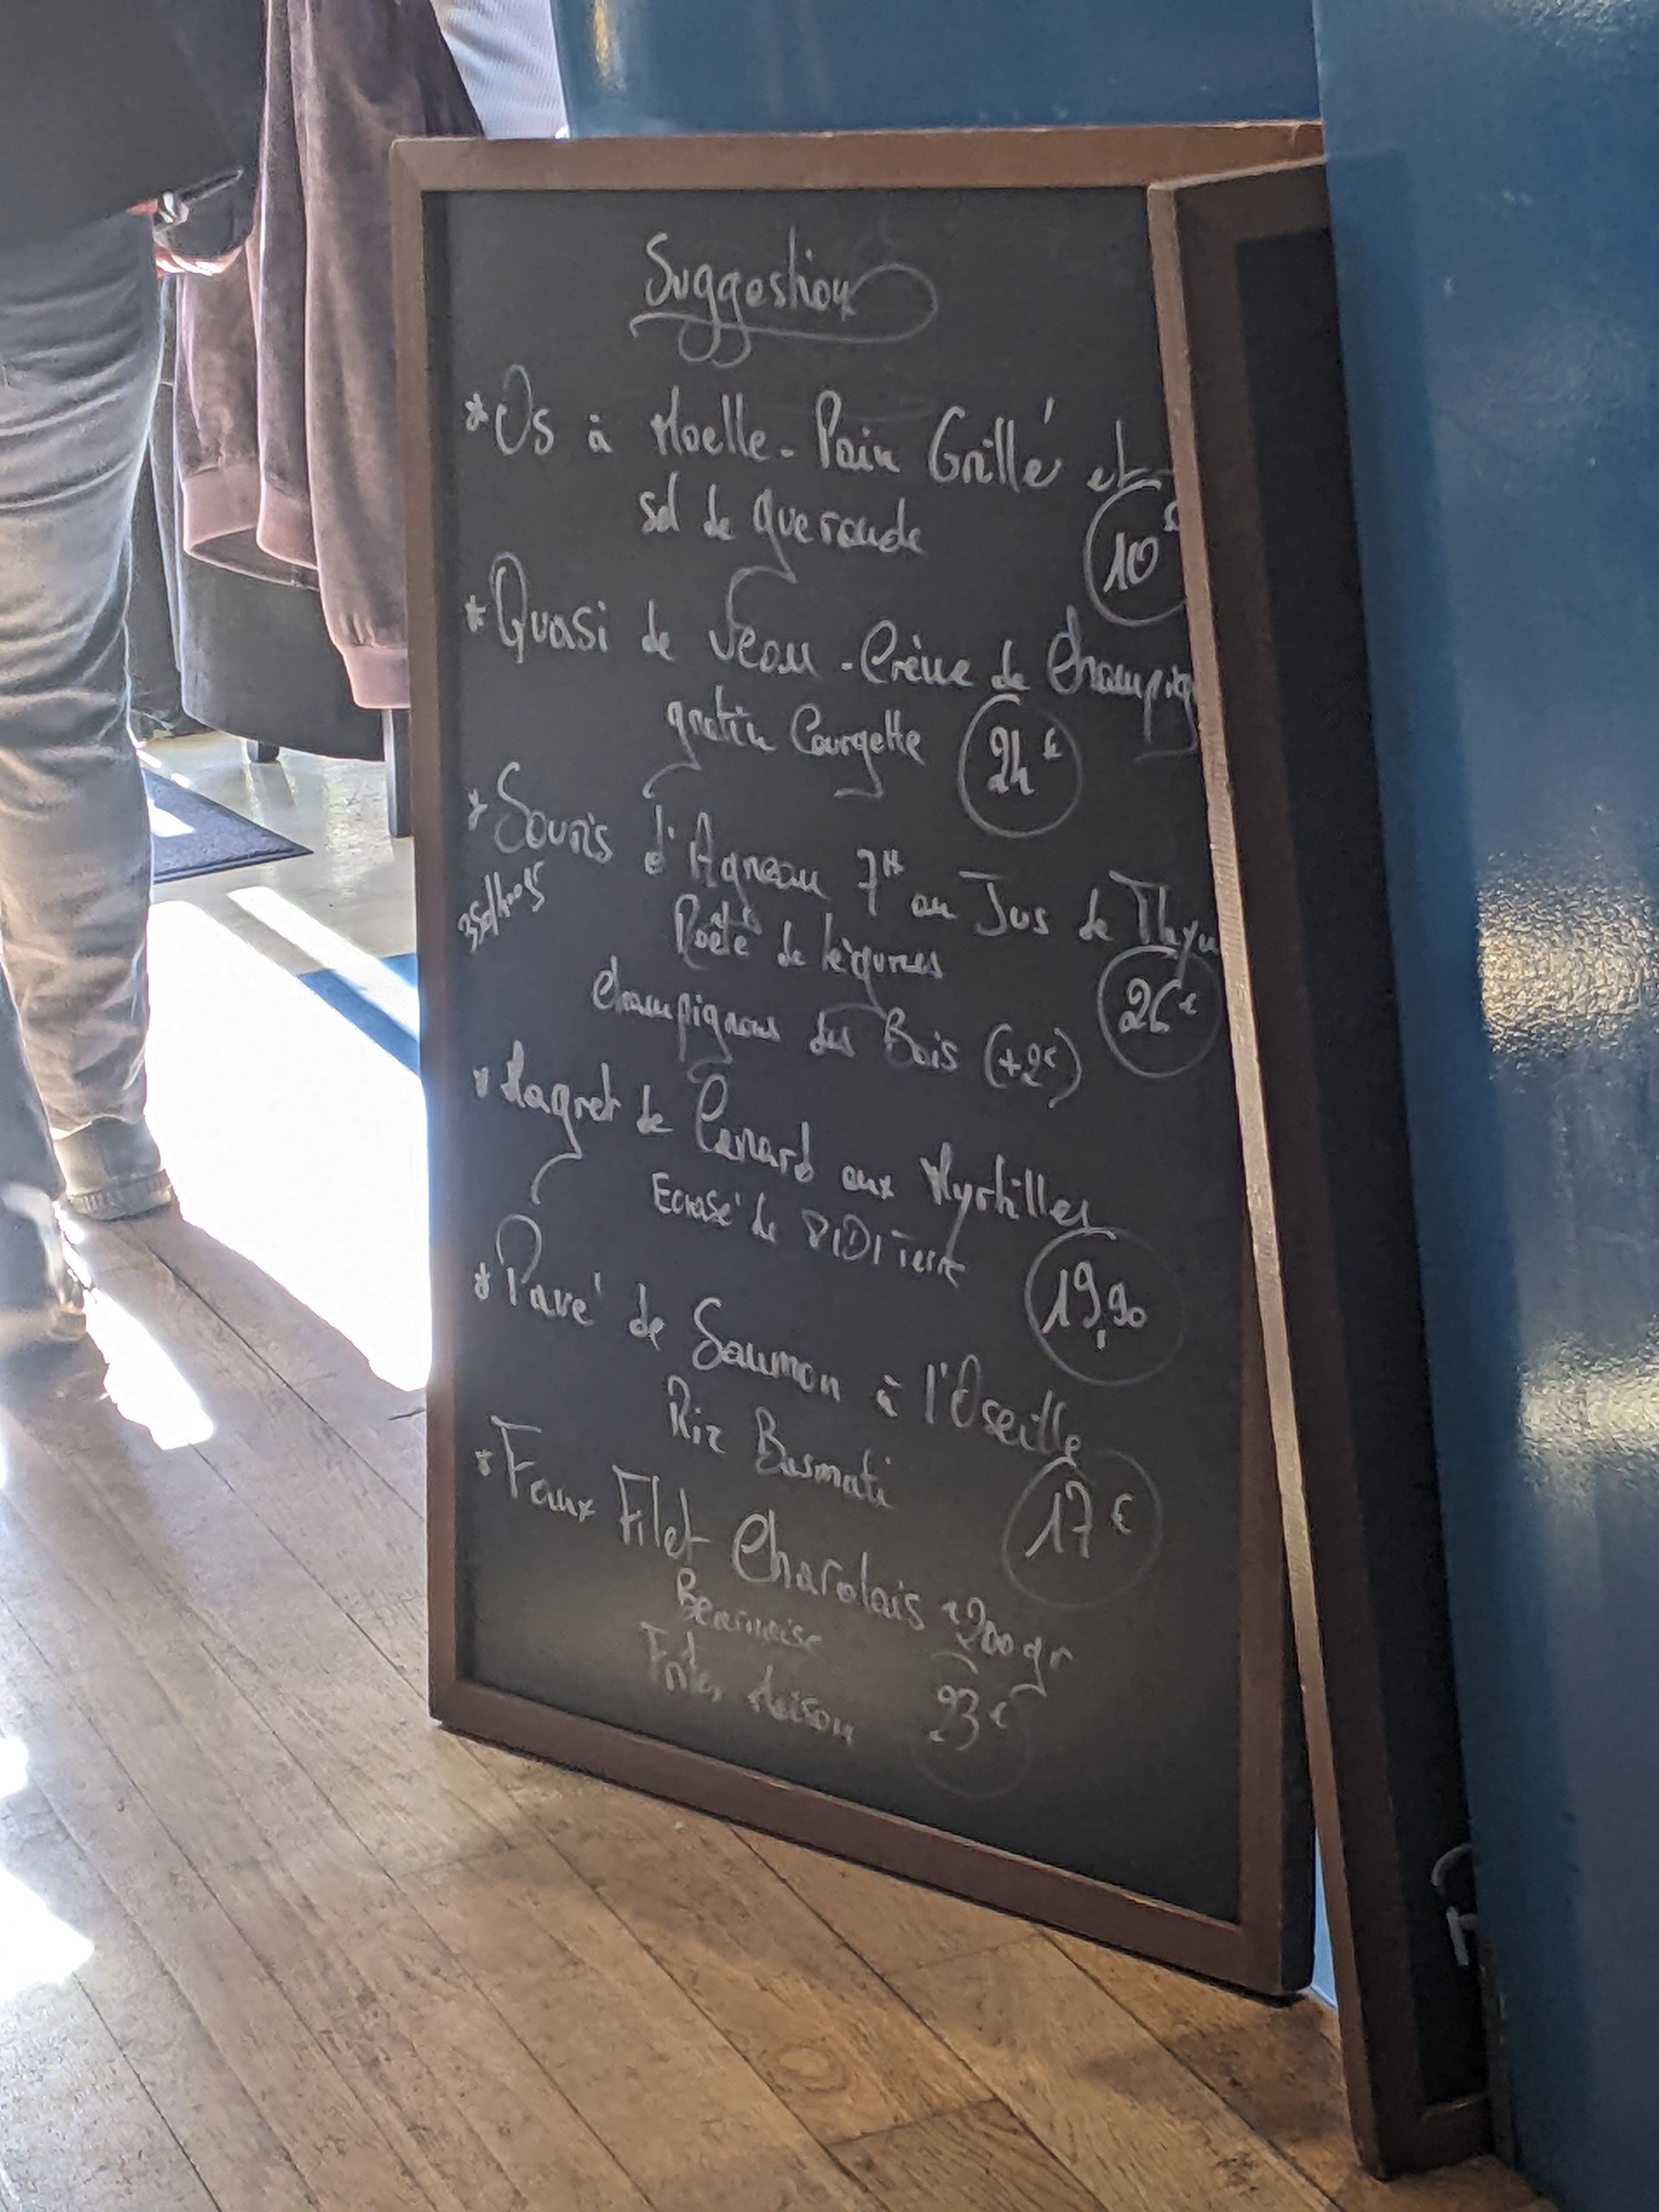 Suggestion
*Os à Moelle - Pain Grillé et
sel de Guerande
10 €
*Quasi de Veau - Crème de Champig
gratin Courgette 24 €
*Souris d'Agneau 7H au Jus de Thym
Poêlé de légumes
Champignons des Bois (+2€)
26 €
*Magret de Canard aux Myrtilles
Ecrasé de PIDI Terre
19,90
*Pavé de Saumon à l'Oseille
Riz Basmati
17 €
*Faux Filet Charolais ~200gr
Bearnaise
Frites Maison 23 €